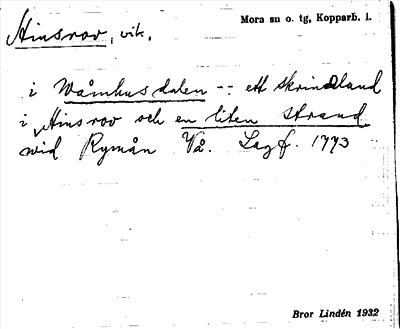 Hinsrov, vik.
Mora sn o. tg, Kopparb. l.
i Våmhusdalen -: ett skrindland
i Hinsrov och en liten strand
wid Rymån Vå. Lagf. 1773
Bror Lindén 1932